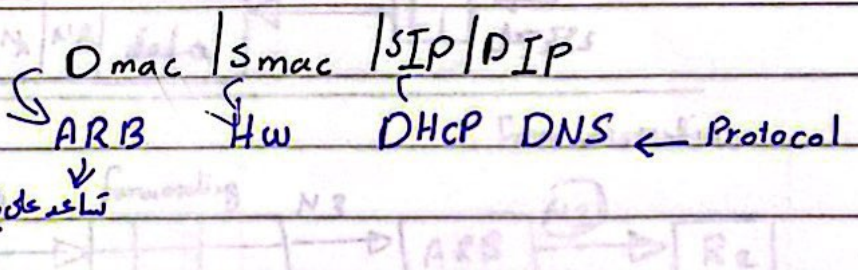 Dmac | Smac | SIP | DIP
ARB Hw DHCP DNS ← Protocol
تساعد على